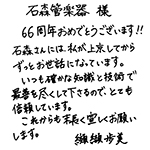 石森管楽器 様
66周年おめでとうございます!!
石森さんには、私が上京してから
ずっとお世話になっています。
いつも確かな知識と技術で
最善を尽くして下さるので、とても
信頼しています。
これからも末長く宜しくお願い
します。
纐纈歩美